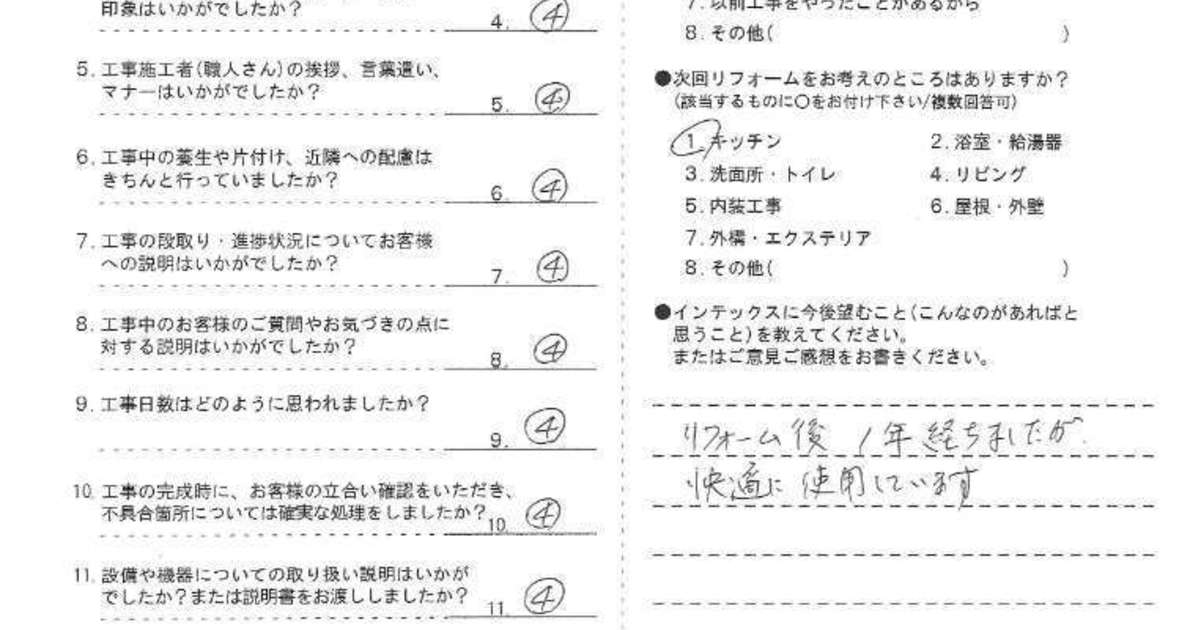 印象はいかがでしたか？
4. ④
5. 工事施工者(職人さん)の挨拶、言葉遣い、
マナーはいかがでしたか？
5. ④
6. 工事中の養生や片付け、近隣への配慮は
きちんと行っていましたか？
6. ④
7. 工事の段取り・進捗状況についてお客様
への説明はいかがでしたか？
7. ④
8. 工事中のお客様のご質問やお気づきの点に
対する説明はいかがでしたか？
8. ④
9. 工事日数はどのように思われましたか？
9. ④
10. 工事の完成時に、お客様の立合い確認をいただき、
不具合箇所については確実な処理をしましたか？
10. ④
11. 設備や機器についての取り扱い説明はいかが
でしたか？または説明書をお渡ししましたか？
11. ④
7. 以前工事をやったことがあるから
8. その他( )
●次回リフォームをお考えのところはありますか？
(該当するものに〇をお付け下さい/複数回答可)
1. キッチン 2. 浴室・給湯器
3. 洗面所・トイレ 4. リビング
5. 内装工事 6. 屋根・外壁
7. 外構・エクステリア
8. その他( )
●インテックスに今後望むこと(こんなのがあればと
思うこと)を教えてください。
またはご意見ご感想をお書きください。
リフォーム後 1年経ちましたが、
快適に使用しています